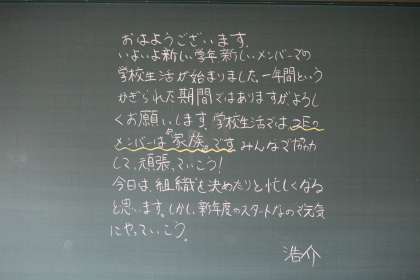 おはようございます。
いよいよ新しい学年 新しいメンバーでの
学校生活が始まりました。一年間という
かぎられた期間ではありますが、よろし
くお願いします。学校生活では2Eの
メンバーは"家族"です。みんなで協力
して、頑張っていこう!
今日は、組織を決めたりと忙しくなる
と思います。しかし、新年度のスタートなので元気
にやっていこう。
浩介